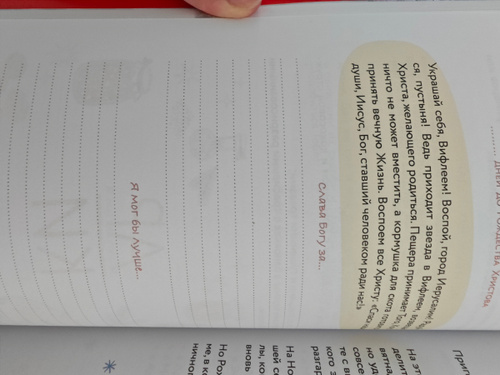 ДНЕЙ ДО РОЖДЕСТВА ХРИСТОВА
Украшай себя, Вифлеем! Воспой, город Иерусалим!
ся, пустыня! Ведь приходит звезда в Вифлеем,
Христа, желающего родиться. Пещера принимает Того,
ничто не может вместить, а кормушка для скота
принять вечную Жизнь. Воспоем все Христу:
души, Иисус, Бог, ставший человеком ради нас!»
Слава Богу за...
Я мог бы лучше...
На эт
делит
вятна,
но уд
совсе
те с в
кого
разгар
На Но
шей се
лы, ко
вновь
Но Рож
ме, в ко
ничног